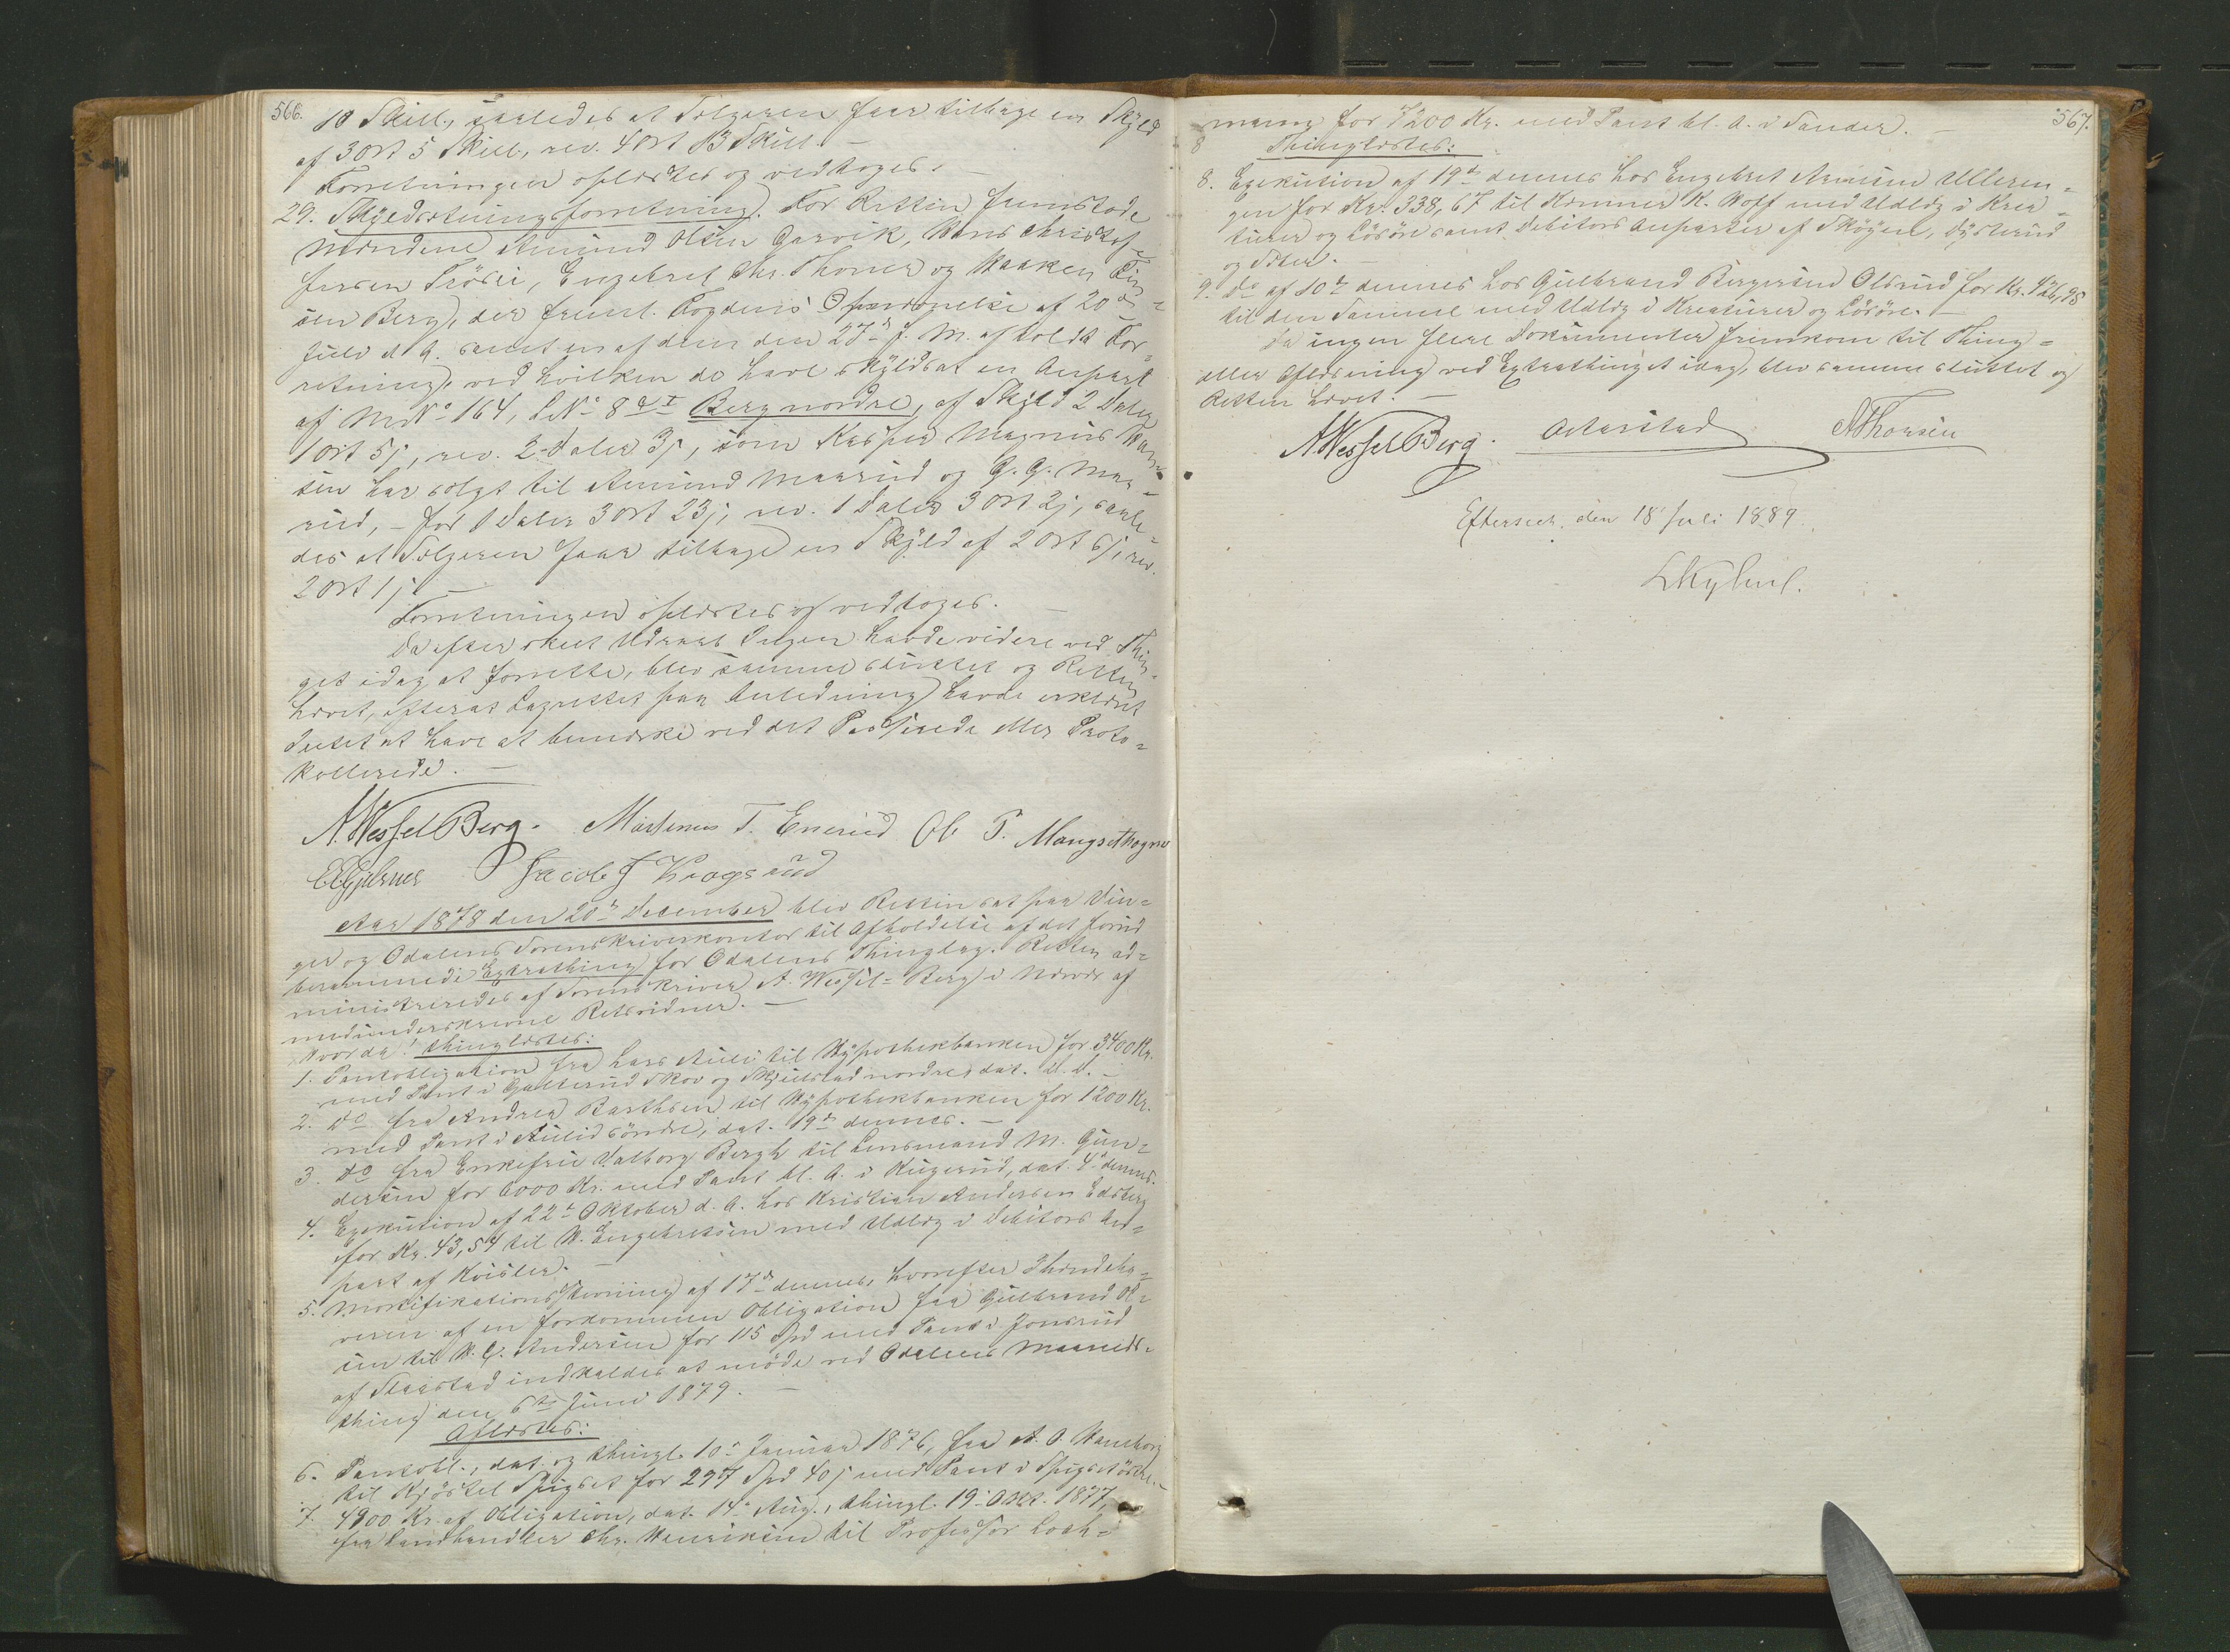 566.
10 Skill., saaledes at Sælgeren faar tilbage en Skyld
af 3 Ort 5 Skill., rev. 4 Ort 13 Skill. —
Forretningen oplæstes og vedtoges. —
29. Skyldsætningsforretning. For Retten fremstode
Mændene Amund Olsen Garvik, Hans Christof-
fersen Trøsei, Engebret Chr. Thorner og Haaken
sen Berg, der freml. Fogdens Opnævnelse af 20de
Juli d. A. samt en af dem den 27de f. M. afholdt For-
retning, ved hvilken de have skyldsat en Anpart
af Mr No 164, L No 8 a I Berg nordre, af Skyld 2 Daler
1 Ort 5 s, rev. 2 Daler 3 s, som Kasper Magnus Han-
sen har solgt til Amund Maarud og G. G. Maa-
rud, – for 1 Daler 3 Ort 23 s, rev. 1 Daler 3 Ort 2 s, saale-
des at Sælgeren faar tilbage en Skyld af 2 Ort 6 s, rev.
2 Ort 1 s. —
Forretningen oplæstes og vedtoges. —
Da efter skeet Udraab Ingen havde videre ved Thin-
get idag at forrette, blev samme sluttet og Retten
hævet, efterat Lagrettet paa Anledning havde erklæret
Intet at have at bemærke ved det Passerede eller Proto-
kollerede. —
A. Wessel Berg. Martinus T. Enerud Ole P. Mangset
Jacob J Krogsrud
Aar 1878 den 20de December blev Retten sat paa Vin-
ger og Odalens Sorenskriverkontor til Afholdelse af det forud
berammede Extrathing for Odalens Thinglag. Retten ad-
ministreredes af Sorenskriver A. Wessel-Berg i Nærvær af
medunderskrevne Retsvidner. —
Hvorda: thinglæstes:
1. Pantobligation fra Lars Auli til Hypothekbanken for 3400 Kr.
med Pant i Galterud Skov og Skjulstad nordre, dat. D. D. —
2. Do fra Andrea Barthsen til Hypothekbanken for 1200 Kr.
med Pant i Aulid søndre, dat. 19de dennes. —
3. Do fra Enkefrue Valborg Bergh til Lensmand M. Gun-
dersen for 6000 Kr. med Pant bl. A. i Rugerud, dat. 4de dennes.
4. Exekution af 22de Oktober d. A. hos Kristian Andersen Edsberg
for Kr. 43,54 til H. Engebretsen med Udlæg i Debitors An-
part af Husler. —
5. Mortifikationsstevning af 17de dennes, hvorefter Ihændeha-
veren af en forkommen Obligation fra Gulbrand Ol-
sen til H. C. Andersen for 115 Spd med Pant i Jonsrud
af Slaastad indkaldes at møde ved Odalens Maaneds-
thing den 6te Juni 1879. —
Aflæstes:
6. Pantobl., dat. og thingl. 10de Januar 1876, fra A. O. Hamborg
til Kjøstel Spigset for 297 Spd 40 s med Pant i
7. 4800 Kr. af Obligation, dat. 14de Aug., thingl. 19de Okt. 1877,
fra Landhandler Chr. Henriksen til Professor Loch-
567.
mann for 7200 Kr. med Pant bl. A. i Sander. —
8 Thinglæstes:
8. Exekution af 19de dennes hos Engebret Amundsen Ulleren-
gen for Kr. 338,67 til Kræmmer K. Wolf med Udlæg i Krea-
turer og Løsøre samt Debitors Anparter af Skøyen, Dysterud
og
9. Do af 10de dennes hos Gulbrand Bergersen Olsrud for Kr. 426,95
til den Samme med Udlæg i Kreaturer og Løsøre. —
Da ingen flere Dokumenter fremkom til Thing-
eller Aflæsning ved Extrathinget idag, blev samme sluttet og
Retten hævet. —
A. Wessel Berg. Aastad A Thorsen
Eftersect. den 18 Juli 1889.